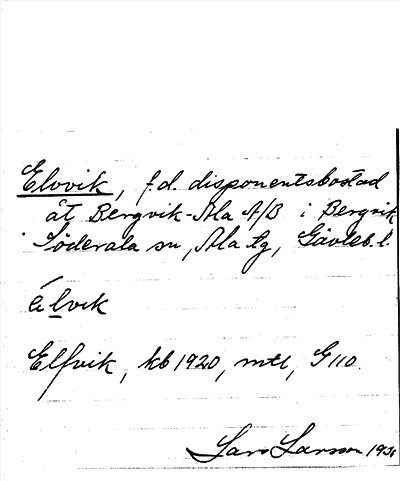 Elvvik, f.d. disponentsbostad
åt Bergvik-Ala A/B i Bergvik
Söderala sn, Ala tg, Gävleb. l.
élvik
Elfvik, kb 1920, mtl, G 110.
Lars Larsson